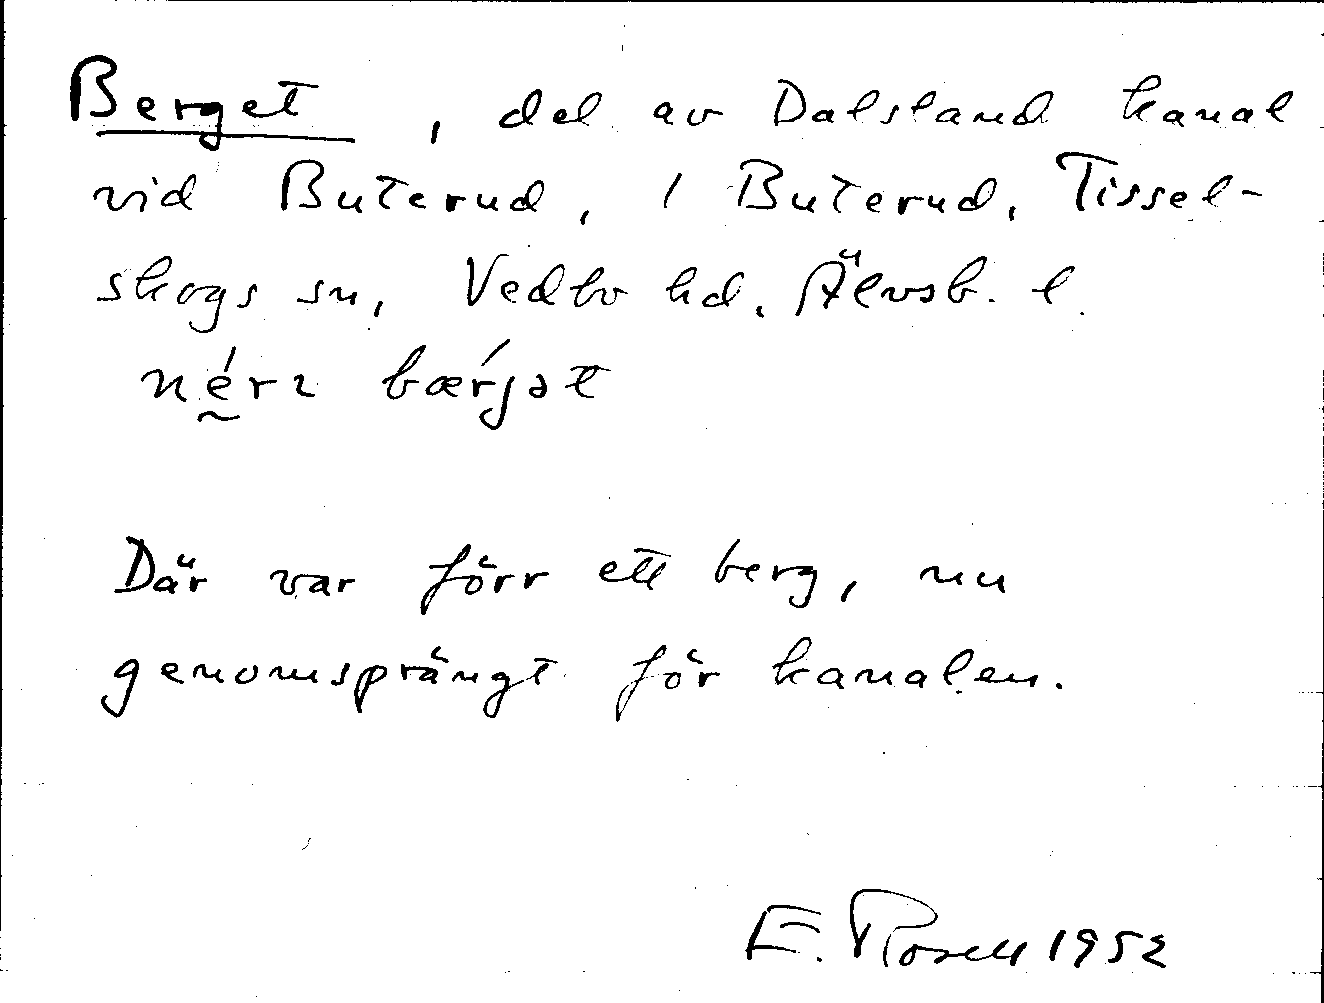 Berget, del av Dalsland kanal
vid Buterud, 1 Buterud, Tissel-
skogs sn, Vedbo hd. Älvsb. l
nérɩ bærjət
Där var förr ett berg, nu
genomsprängt för kanalen.
E. Rosell 1952